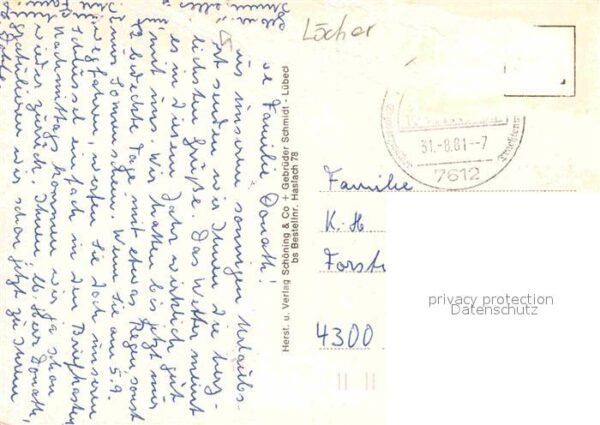 Löcher
31.-8.81--7
7612
Familie
K.-H
Forst
4300
privacy protection
Datenschutz
Herst. u. Verlag Schöning & Co + Gebrüder Schmidt - Lübeck
bs Bestellnr. Haslach 78
be Familie Donath!
Aus unserem sonnigen Urlaubs-
ort senden wir Ihnen die herz-
lichsten Grüße. Das Wetter meint
es in diesem Jahr wirklich gut
mit uns. Wir hatten bis jetzt nur
bedeckte Tage mit etwas Regen, sonst
nur Sonnenschein. Wenn Sie am 5.9.
wegfahren, werfen Sie doch unseren
Schlüssel einfach in den Briefkasten,
Nachmittags kommen wir ja schon
wieder zurück. Ihnen, lb. Herr Donath,
gratulieren wir schon jetzt zu Ihrem